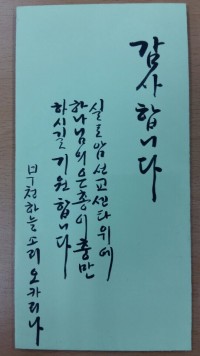 감사합니다
실로암선교센타위에
하나님의은총이충만
하시길 기원합니다
부천하늘소리 오카리나